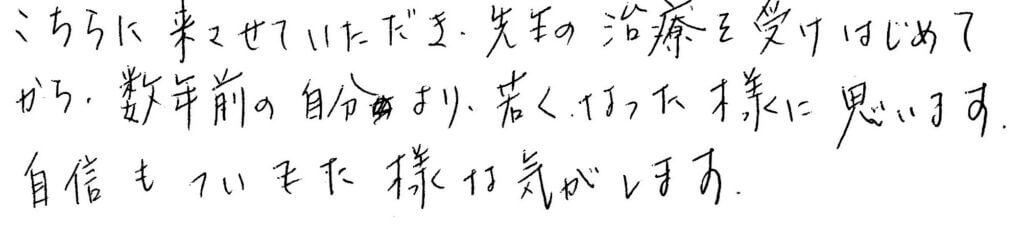 こちらに来させていただき、先生の治療を受けはじめて
から、数年前の自分より、若くなった様に思います。
自信もついてきた様な気がします。